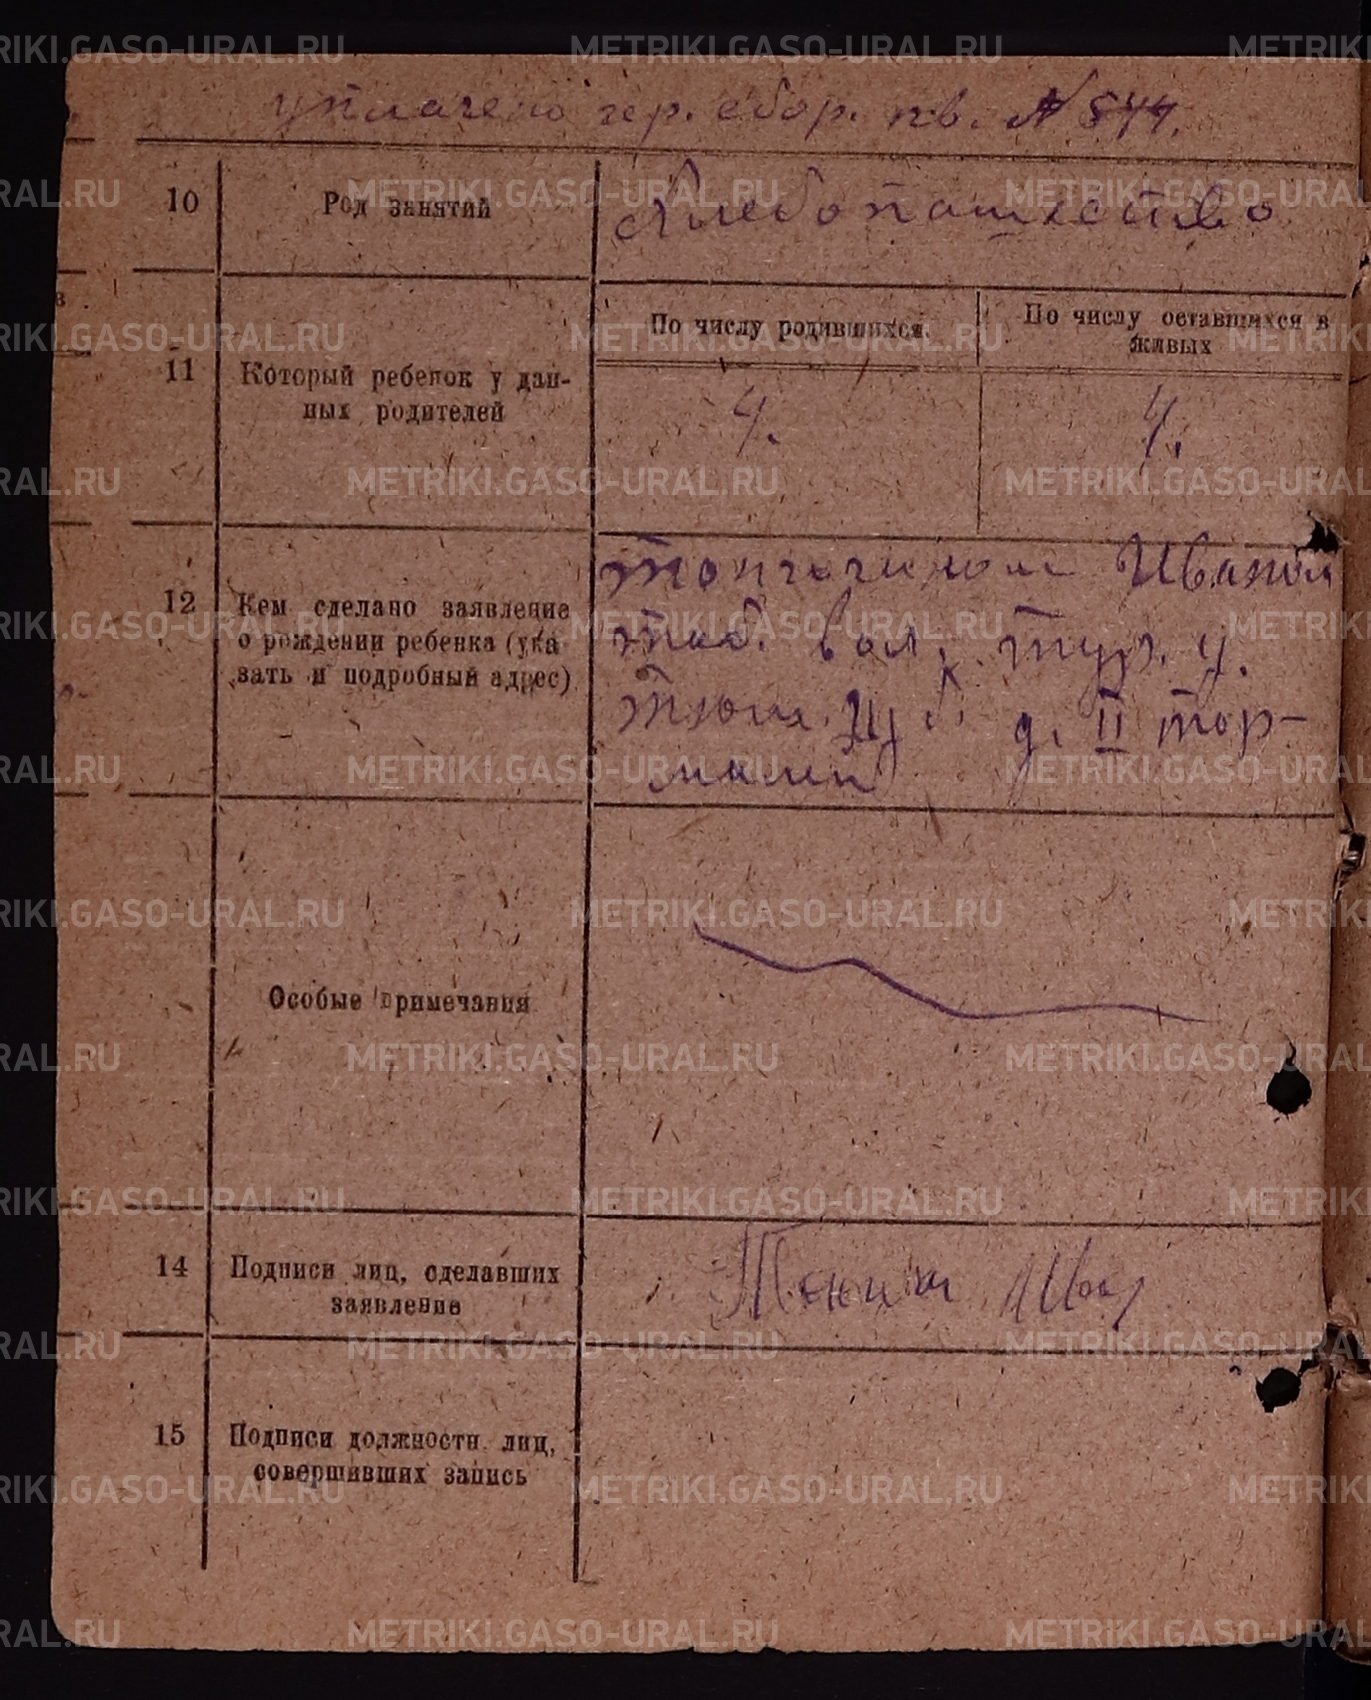 уплачено гер. сбор. кв. № 844.
10 Род занятий Хлебопашество
11 Который ребенок у дан-
ных родителей
По числу родившихся
По числу оставшихся в
живых
4. 4.
12 Кем сделано заявление
о рождении ребенка (ука
зать и подробный адрес)
Иваном
таб. вол, тур. у.
д. II тор-
Особые примечания
14 Подписи лиц, сделавших
заявление
15 Подписи должности лиц,
совершивших запись
METRIKI.GASO-URAL.RU